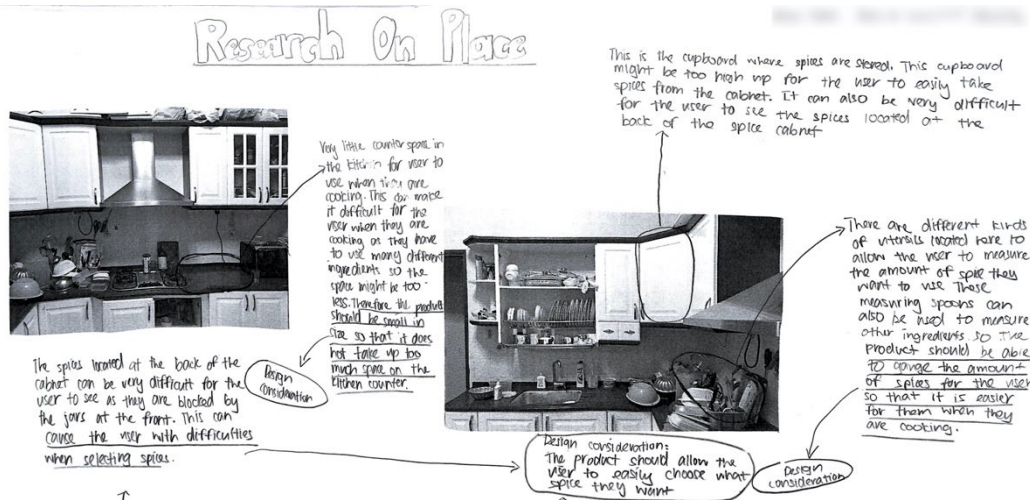 Research On Place
This is the cupboard where spices are stored. This cupboard
might be too high up for the user to easily take
spices from the cabnet. It can also be very difficult
for the user to see the spices located at the
back of the spice cabnet
Very little counter space in
the kitchen for user to
use when they are
cooking. This can make
it difficult for the
user when they are
cooking as they have
to use many different
ingredients so the
space might be too
less. Therefore the product
should be small in
size so that it does
not take up too
much space on the
kitchen counter.
Design
consideration
There are different kinds
of utensils located here to
allow the user to measure
the amount of spice they
want to use These
measuring spoons can
also be used to measure
other ingredients. so the
product should be able
to gauge the amount
of spices for the user
so that it is easier
for them when they
are cooking.
Design
consideration
The spices located at the back of the
cabnet can be very difficult for the
user to see as they are blocked by
the jars at the front. This can
cause the user with difficulties
when selecting spices.
Design consideration:
The product should allow the
user to easily choose what
spice they want